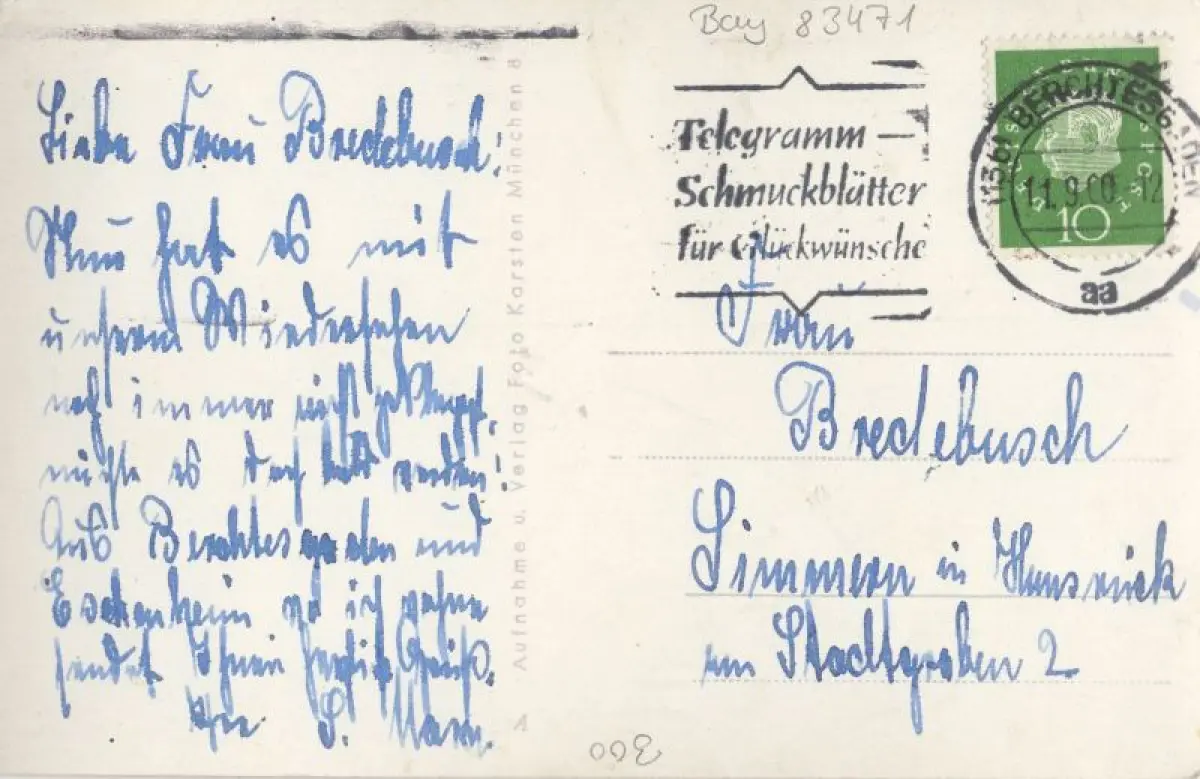 Bay 83471
Liebe Frau Bredebusch!
Nun hat es mit
unserm Wiedersehen
noch immer nicht geklappt,
möchte es doch bald werden!
Aus Berchtesgaden und
Eschenheim wo ich wohne
sendet Ihnen herzliche Grüße.
Ihre S.
Aufnahme u. Verlag Foto Karsten München 8
Telegramm –
Schmuckblätter
für Glückwünsche
DEUTSCHE BUNDESPOST
10
(13b) BERCHTESGADEN
11.9.60.-12
aa
Frau
Bredebusch
Simmern in Hunsrück
am Stadtgraben 2
300